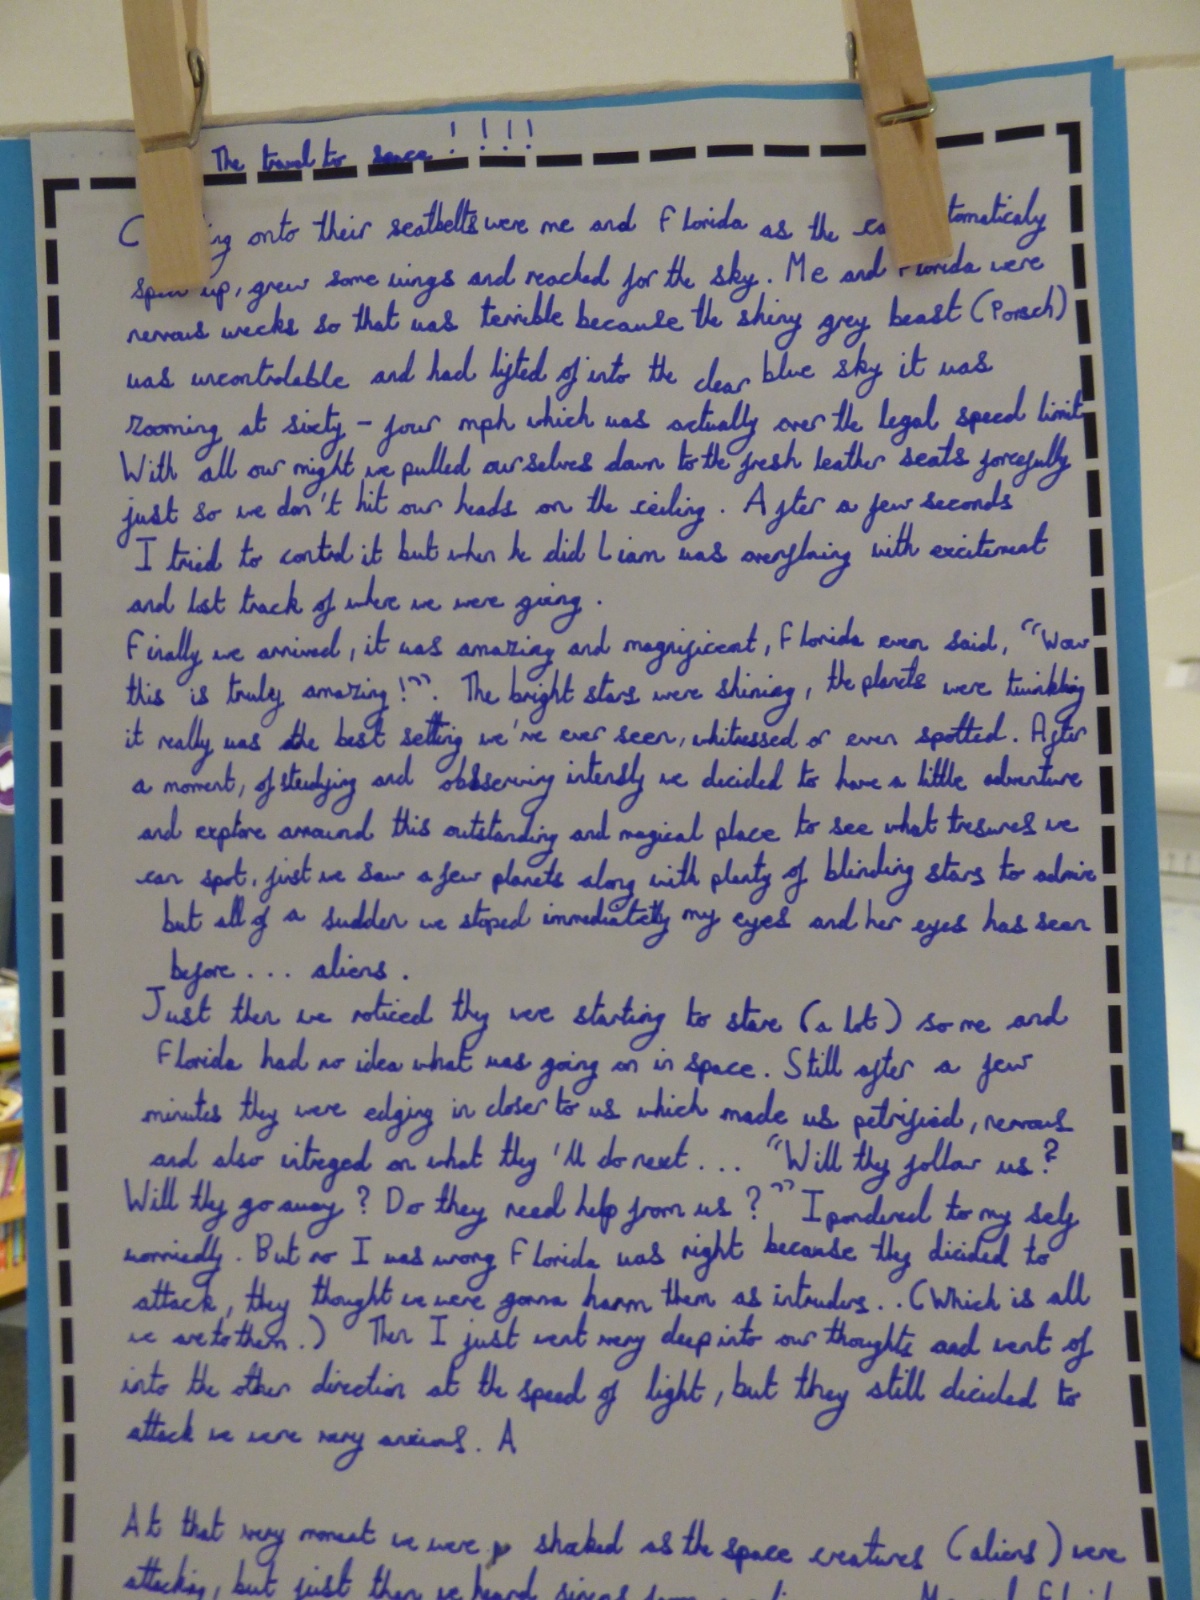 The travel to space!!!!
onto their seatbelts were me and Florida as the
up, grew some wings and reached for the sky. Me and Florida were
nervous wecks so that was terrible because the shiny grey beast (Porsch)
was uncontrolable and had lifted of into the clear blue sky it was
zooming at sixty-four mph which was actually over the legal speed limit
With all our might we pulled ourselves down to the fresh leather seats forcefully
just so we don't hit our heads on the ceiling. After a few seconds
I tried to control it but when he did Liam was with excitement
and lost track of where we were going.
Finally we arrived, it was amazing and magnificent, Florida even said, "Wow
this is truly amazing!". The bright stars were shining, the planets were twinkling
it really was the best setting we've ever seen, whitnessed or even spotted. After
a moment, of studying and obsserving intensly we decided to have a little adventure
and explore arround this outstanding and magical place to see what tresures we
can spot, just we saw a few planets along with plenty of blinding stars to admire
but all of a sudden we stoped immediatetly my eyes and her eyes has seen
before... aliens.
Just then we noticed they were starting to stare (a lot) so me and
Florida had no idea what was going on in space. Still after a few
minutes they were edging in closer to us which made us petrified, nervous
and also intreged on what they'll do next... "Will they follow us?
Will they go away? Do they need help from us?" I pondered to my self
worriedly. But no I was wrong Florida was right because they decided to
attack, they thought we were gonna harm them as intruders..(Which is all
we are to them.) Then I just went very deep into our thoughts and went of
into the other direction at the speed of light, but they still decided to
attack we were very anxious. A
At that very moment we were shocked as the space creatures (aliens) were
attacking, but just then we heard sirens